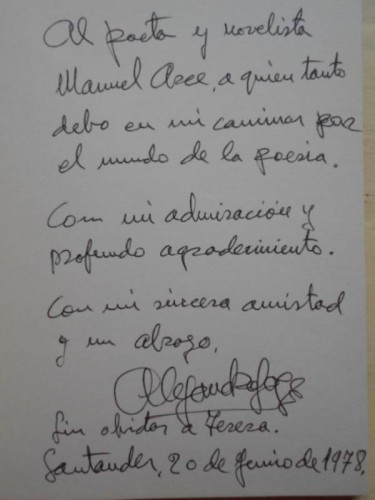 Al poeta y novelista
Manuel Arce, a quien tanto
debo en mi caminar por
el mundo de la poesía.
Con mi admiración y
profundo agradecimiento.
Con mi sincera amistad
y un abrazo,
Sin olvidar a Teresa.
Santander, 20 de Junio de 1978,